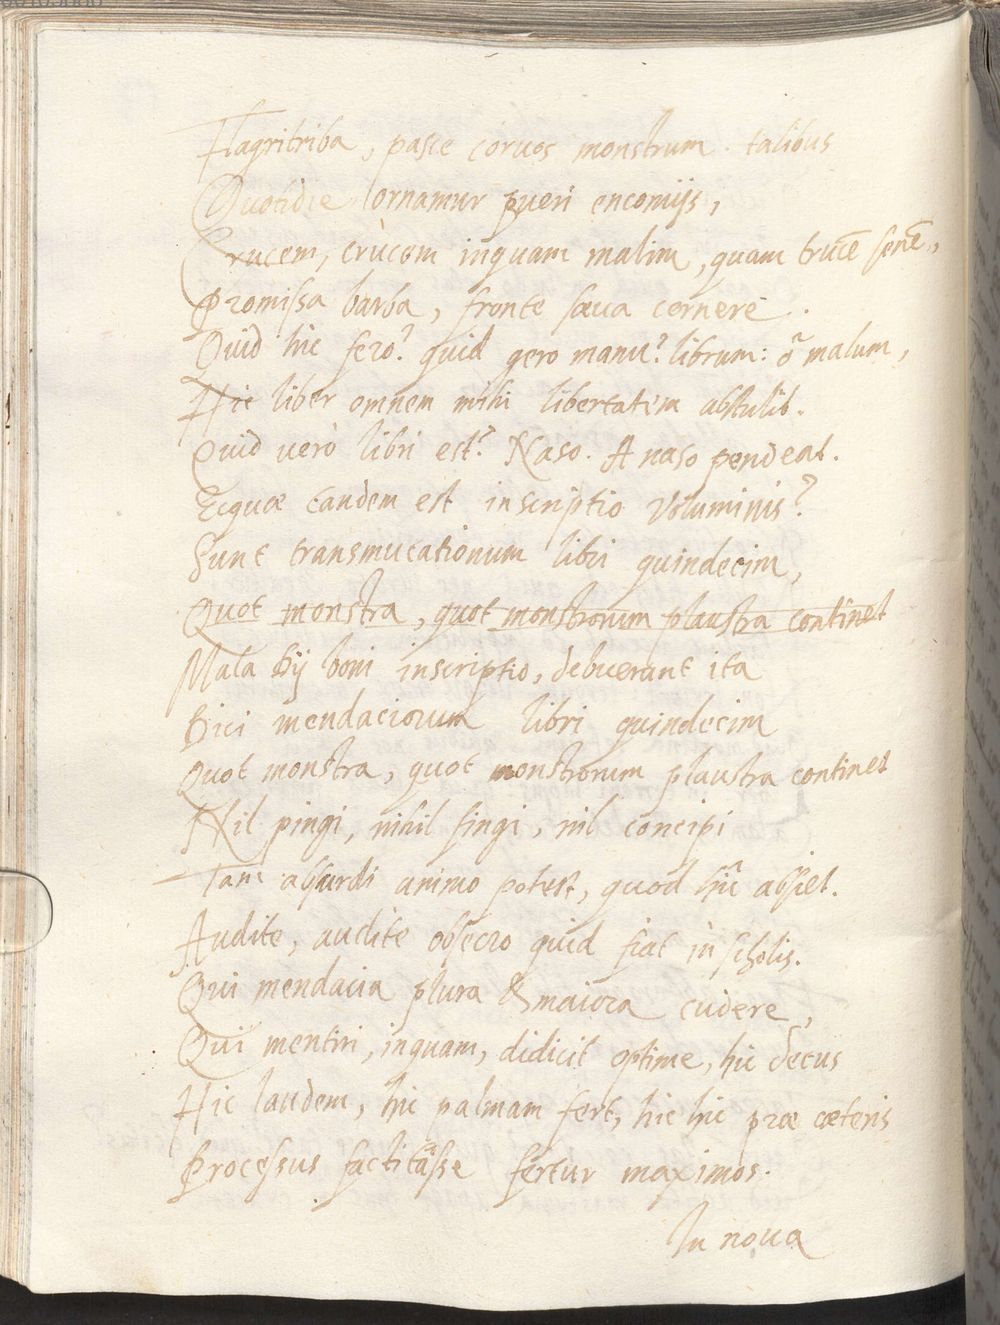 Flagritriba, pasce corvos monstrum. talibus
Quotidie ornamur pueri encomijs,
Crucem, crucem inquam malim, quam trucē senē,
Promissa barba, fronte sæva cernere.
Quid hic fero? quid gero manu? librum: ô malum,
Hic liber omnem mihi libertatem abstulit.
Quid verò libri est? Naso. A naso pendeat.
Ecquæ tandem est inscriptio voluminis?
Sunt transmutationum libri quindecim,
Quot monstra, quot monstrorum plaustra continet
Mala Dij boni inscriptio, debuerant ita
Dici mendaciorum libri quindecim
Quot monstra, quot monstrorum plaustra continet
Nil pingi, nihil fingi, nil concipi
Tam absurdi animo potest, quod hîc absiet.
Audite, audite obsecro quid fiat in scholis.
Qui mendacia plura & maiora cudere,
Qui mentiri, inquam, didicit optime, hic decus
Hic laudem, hic palmam fert, hic hic præ cæteris
Processus factitâsse fertur maximos.
In nova